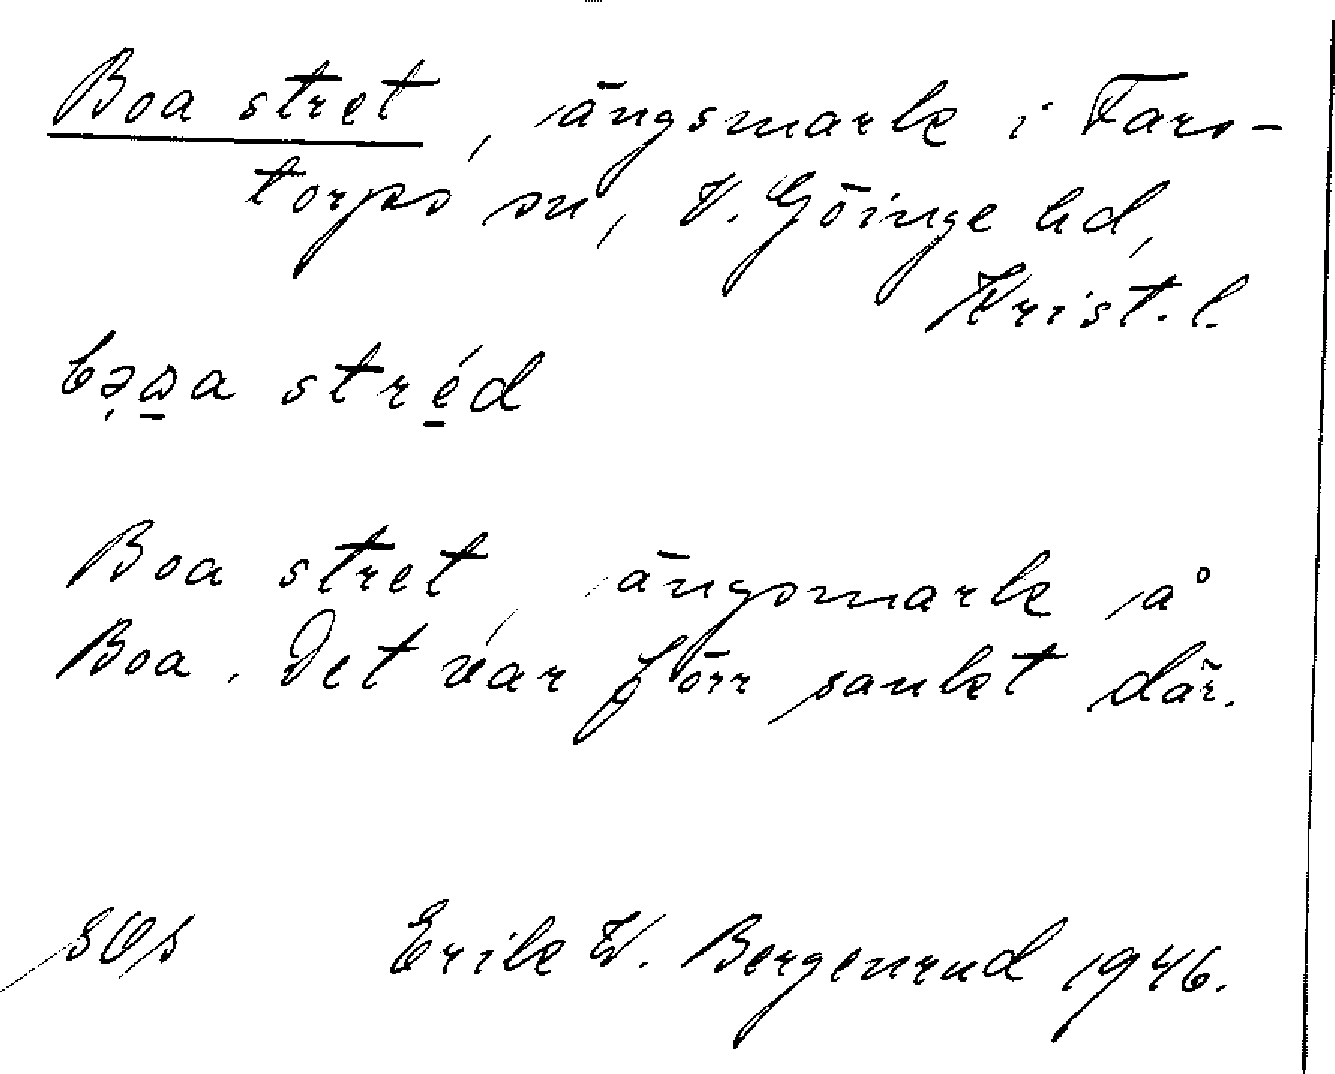 Boa stret, ängsmark i Fars-
torps sn, V. Göinge hd,
Krist. l.
Boa stret, ängsmark å
Boa. Det var förr sankt där.
Erik W. Bergenrud 1946.